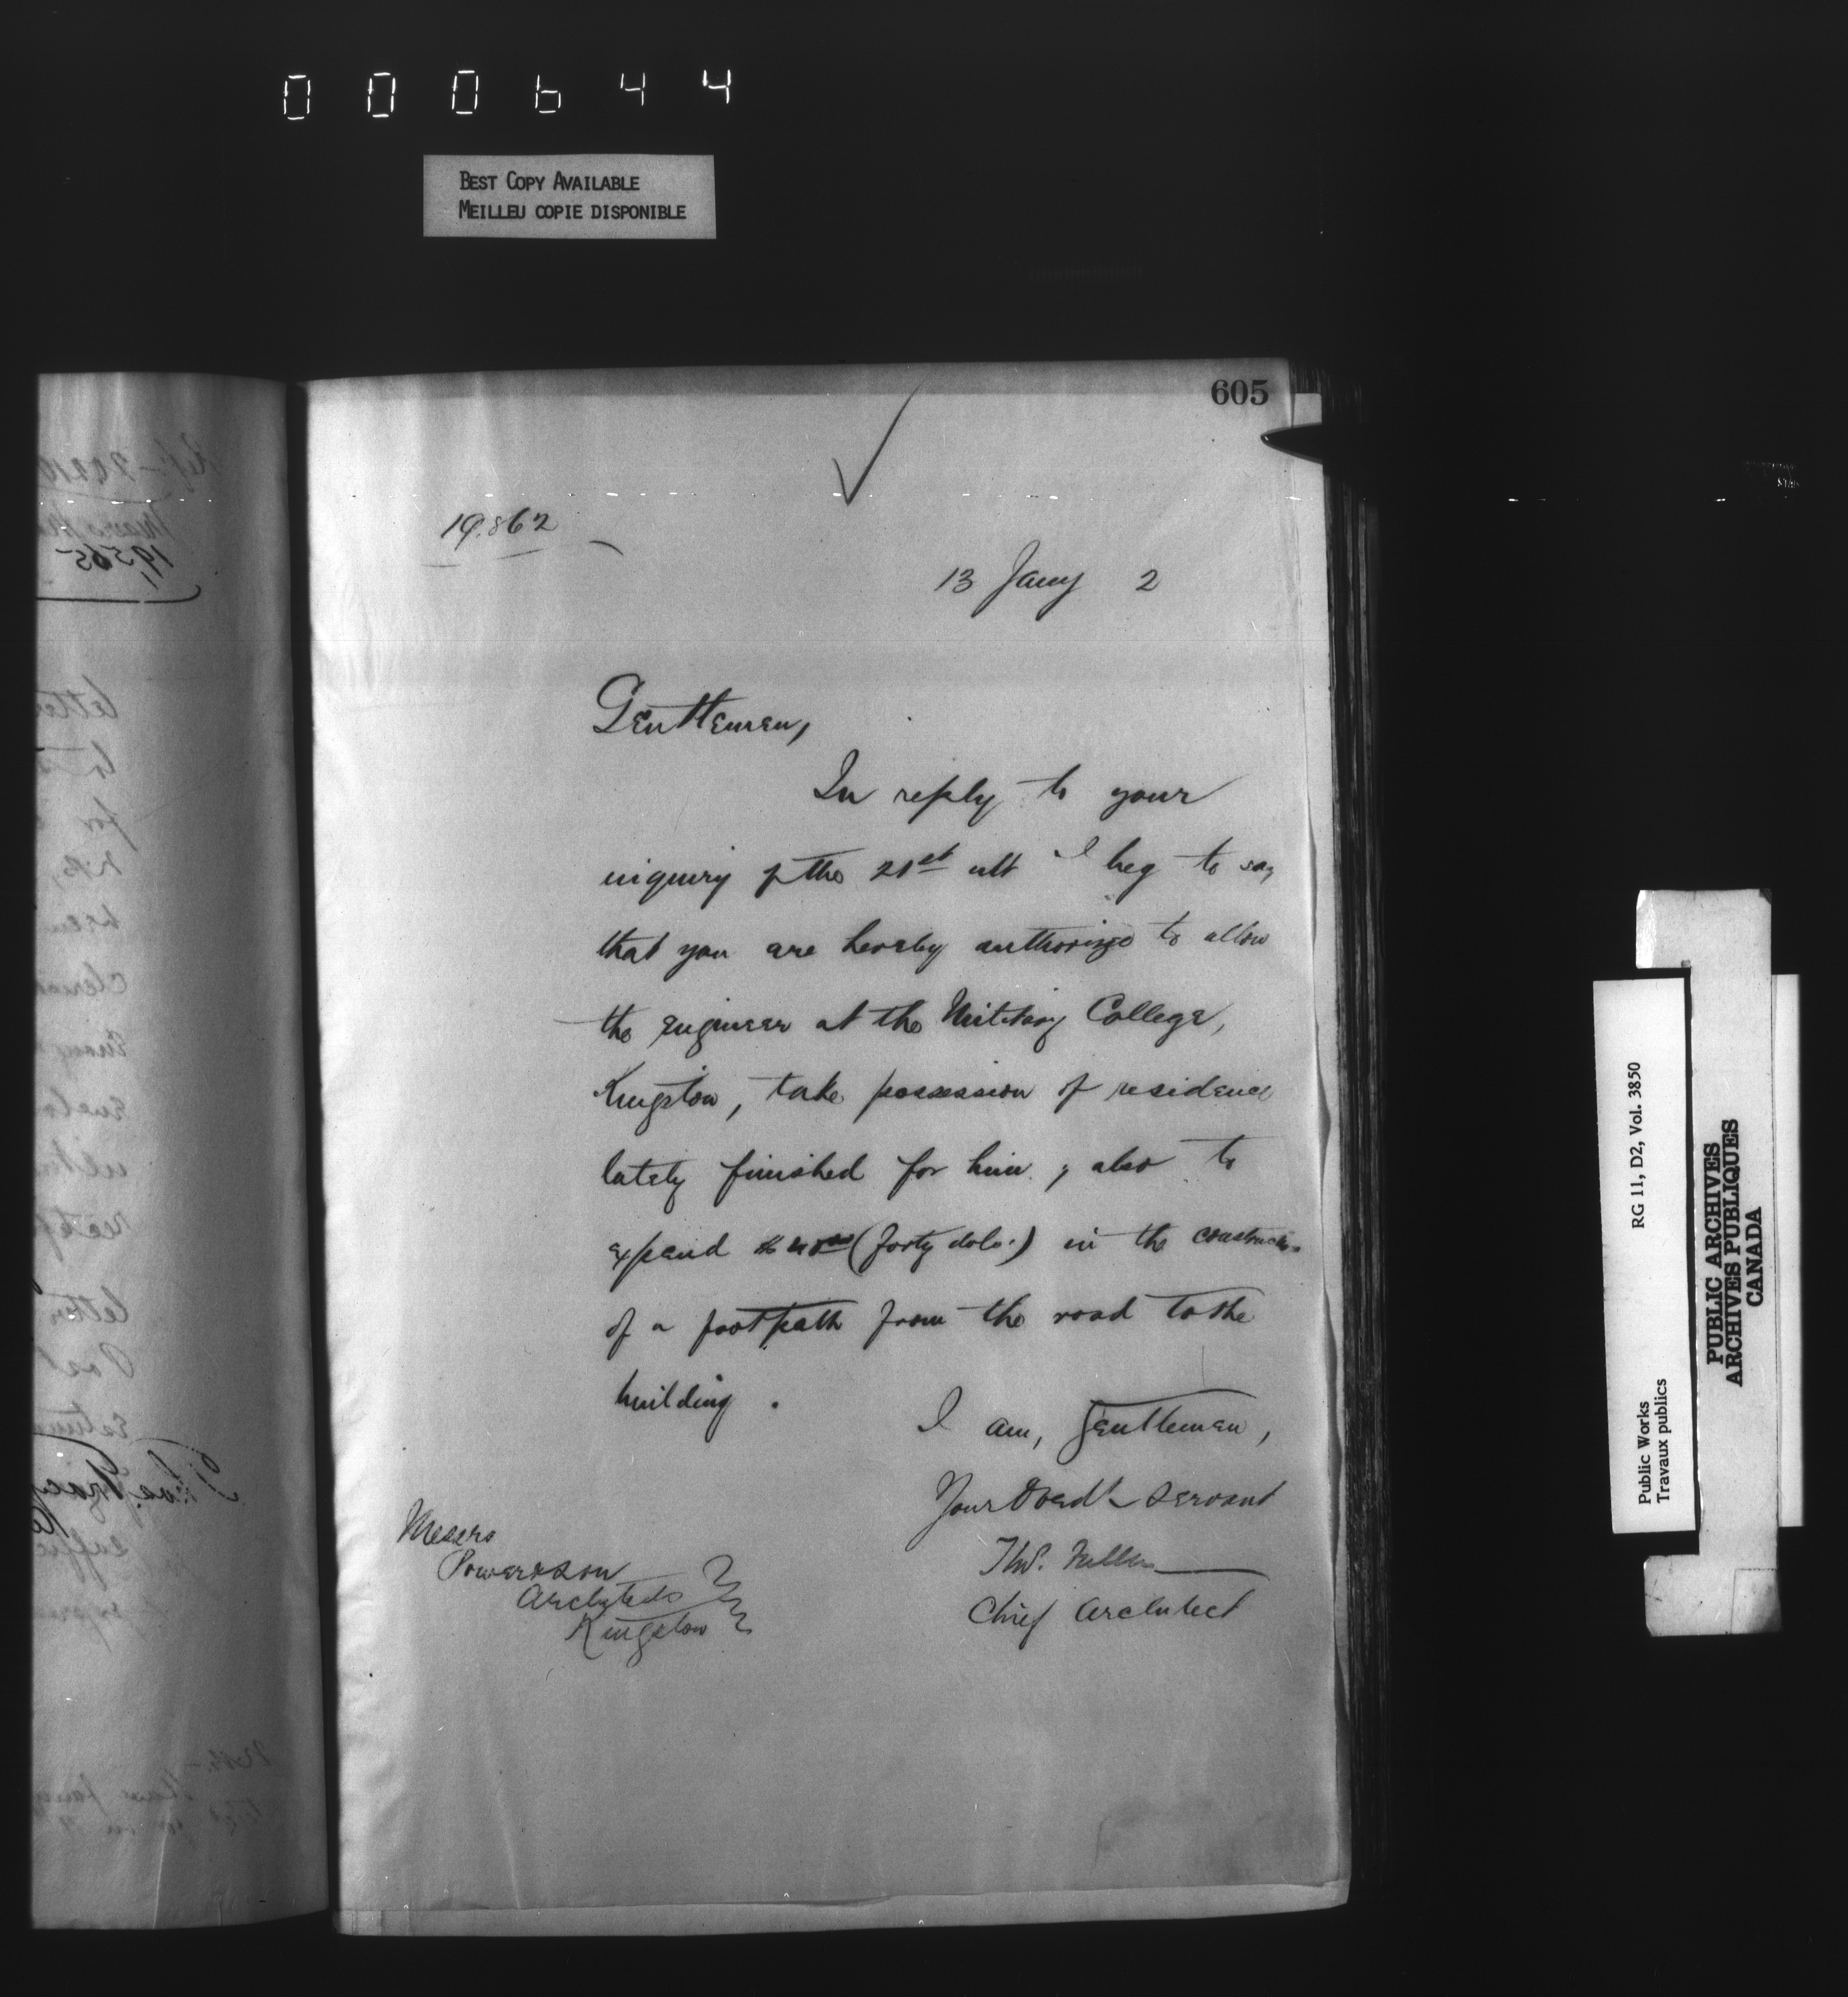 000644
BEST COPY AVAILABLE
MEILLEU COPIE DISPONIBLE
605
19.862
13 Jany 2
Gentlemen,
In reply to your
inquiry of the 21st ult I beg to say
that you are hereby authorize to allow
the Engineer at the Military College,
Kingston, take possession of residence
lately finished for him; also to
expend $40.00 (forty dols.) in the construction
of a footpath from the road to the
building.
I am, Gentlemen,
Your Obedt Servant
Thos. Fuller
Chief Architect
Messrs
Power & Son
Architects
Kingston
RG 11, D2, Vol. 3850
Public Works
Travaux publics
PUBLIC ARCHIVES
ARCHIVES PUBLIQUES
CANADA